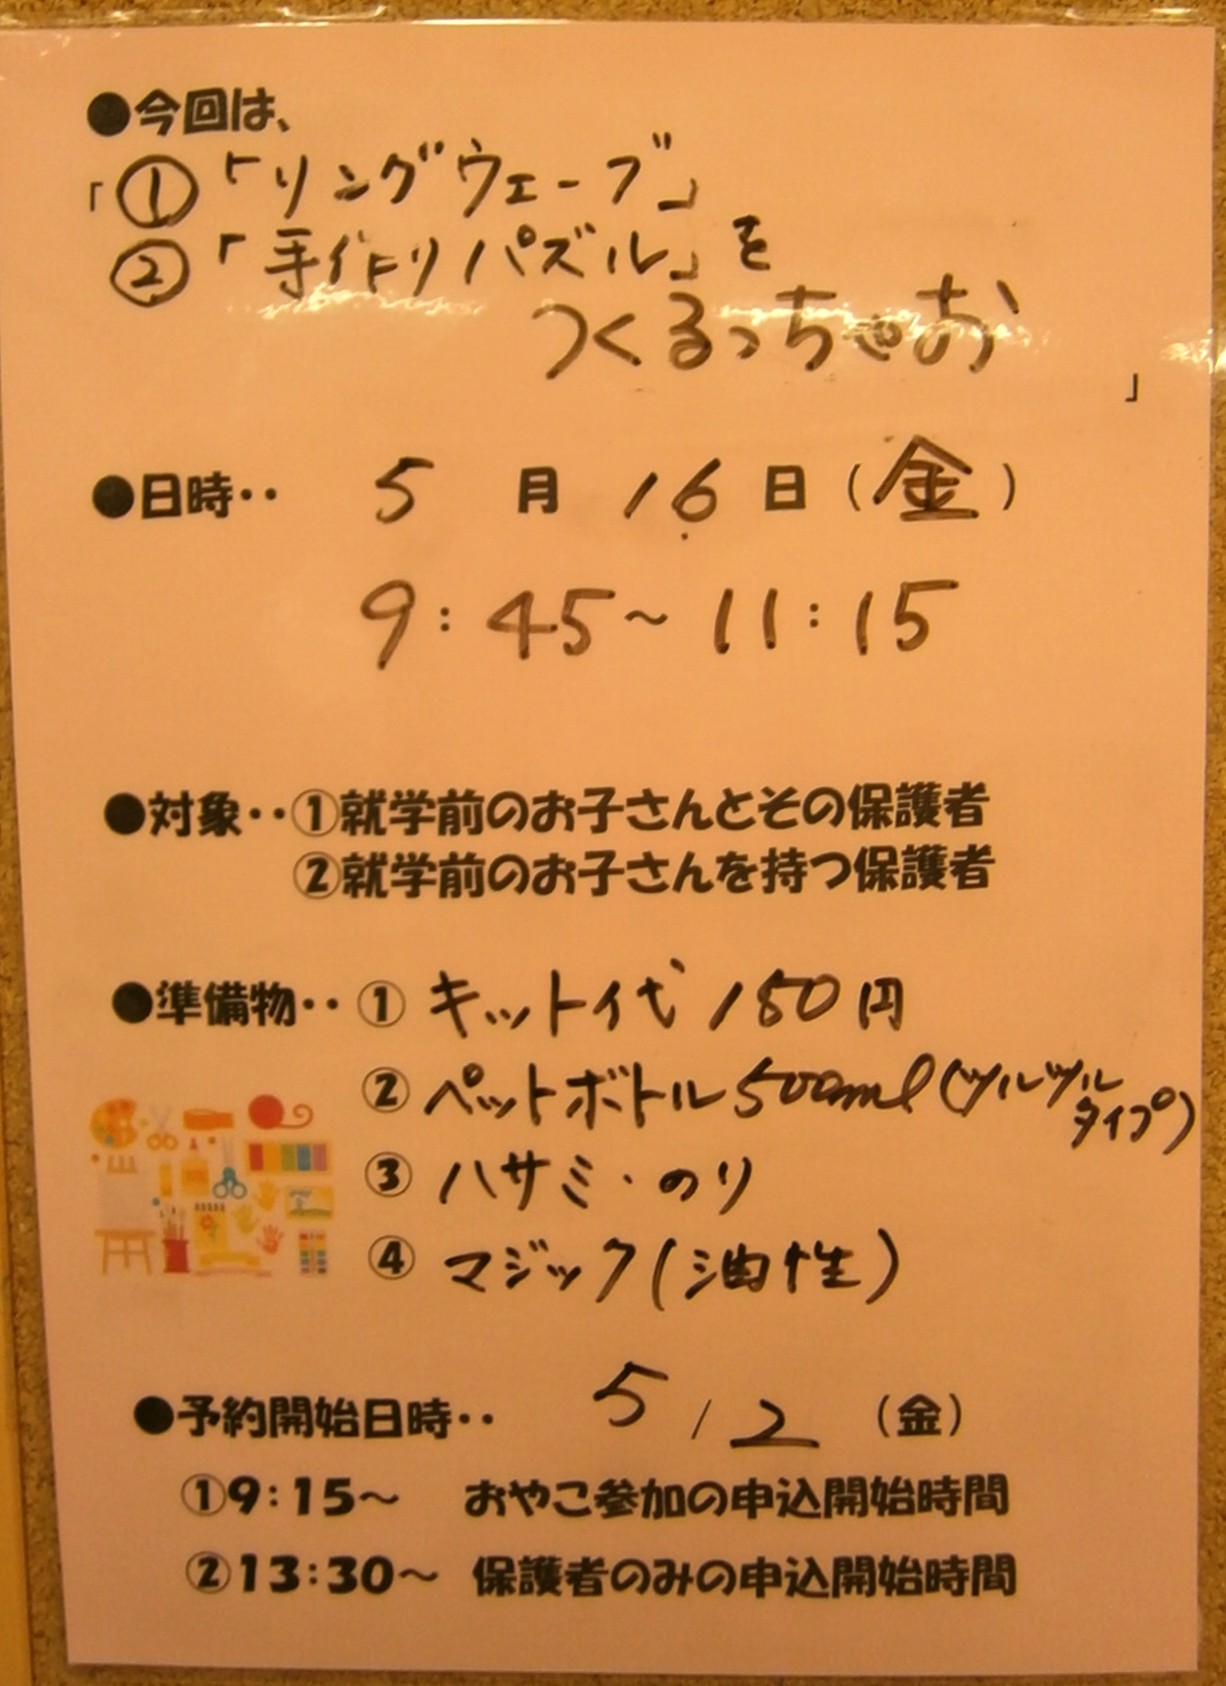 ●今回は、
「①「リングウェーブ」
②「手作りパズル」を
つくるっちゃお
」
●日時‥ 5月16日(金)
9:45～11:15
●対象‥①就学前のお子さんとその保護者
②就学前のお子さんを持つ保護者
●準備物‥① キット代 150円
② ペットボトル500ml(ツルツル
タイプ)
③ ハサミ・のり
④ マジック(油性)
●予約開始日時‥ 5/2 (金)
①9:15～ おやこ参加の申込開始時間
②13:30～ 保護者のみの申込開始時間